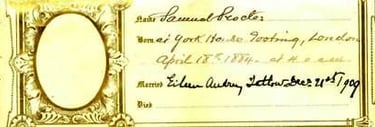 Name Samuel Procter
Born at York House Tooting, London
April 18th 1884. at
Married Eileen Audrey Tattow Decr 21st 1909
Died